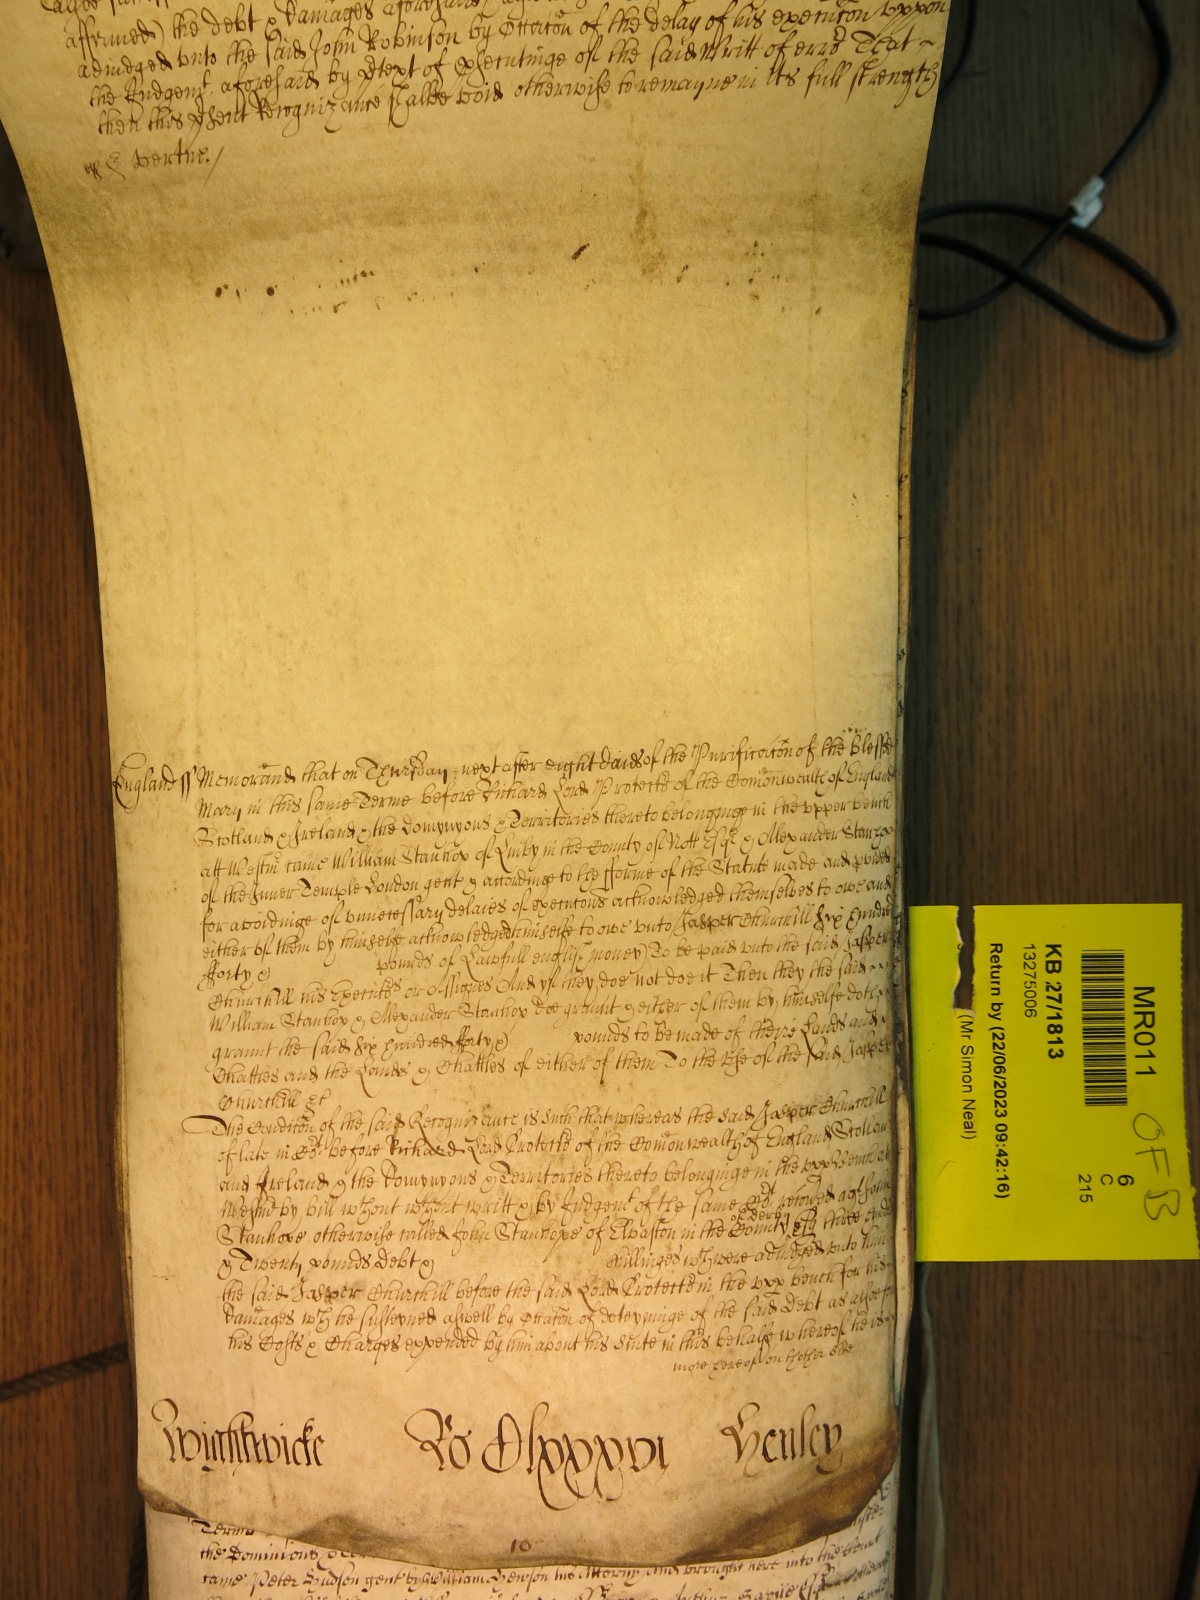 affirmed) the debt & damages aforesaid
adiudged vnto the said John Robinson by Occacōn of the delay of his execucōn vppon
the Judgemt aforesaid by ptext of psecutinge of the said Writt of errō That
then this psent Recognizance shalbe void otherwise to remayne in its full strength
& vertue./
England ss Memorand that on Thursday next after eight daies of the Purificacōn of the Blessed
Mary in this same Terme before Richard Lord Protectō of the Comōnwealth of England
Scotland & Ireland & the domynyons & Territories thereto belonginge in the vpper bench
att Westmr came William Stanhop of Linby in the County of Nott Esqr & Alexander Stanhop
of the Inner Temple London gent & accordinge to the fforme of the Statute made and pvided
for avoidinge of vnnecessary delaies of execucons acknowledged themselves to owe and
either of them by himselfe acknowledged himselfe to owe vnto Jasper Churchill Six hundred
fforty & pounds of Lawfull english money To be paid vnto the said Jasper
Churchill his Executōs or Assignes And yf they doe not doe it Then they the said
William Stanhop & Alexander Stanhop doe graunt & either of them by himselfe doth
graunt the said Six hundred fforty & pounds to be made of theire Lands and
Chattles and the Lands & Chattles of either of them To the Vse of the said Jasper
Churchill &c
The Condicōn of the said Recognizance is such that whereas the said Jasper Churchill
of late in before Richard Lord Protectō of the Comōnwealth of England Scotland
and Ireland & the Domynyons & Territories thereto belonginge in the vpp Bench at
Westmr by bill wthout writt & by Judgemt of the same Cort recoved agt John
Stanhope otherwise called John Stanhope of Elvaston in the County of Derby Esq three hundred
& Twenty pounds Debt & shillinges wch were adiudged vnto him
the said Jasper Churchill before the said Lord Protectō in the vpp bench for his
Damages wch he susteyned aswell by occacōn of deteyninge of the said Debt as alsoe for
his Costs & Charges expended by him about his Suite in this behalfe whereof he is
more hereof on thother side
Wightwicke Ro Clxxxvi Henley
10
Terme
the Dominions
came Peter Hudson gent by William Hewson his Attorny And brought here into the Court
MR011
6
C
215
OF B
KB 27/1813
13275006
Return by (22/06/2023 09:42:16)
(Mr Simon Neal)